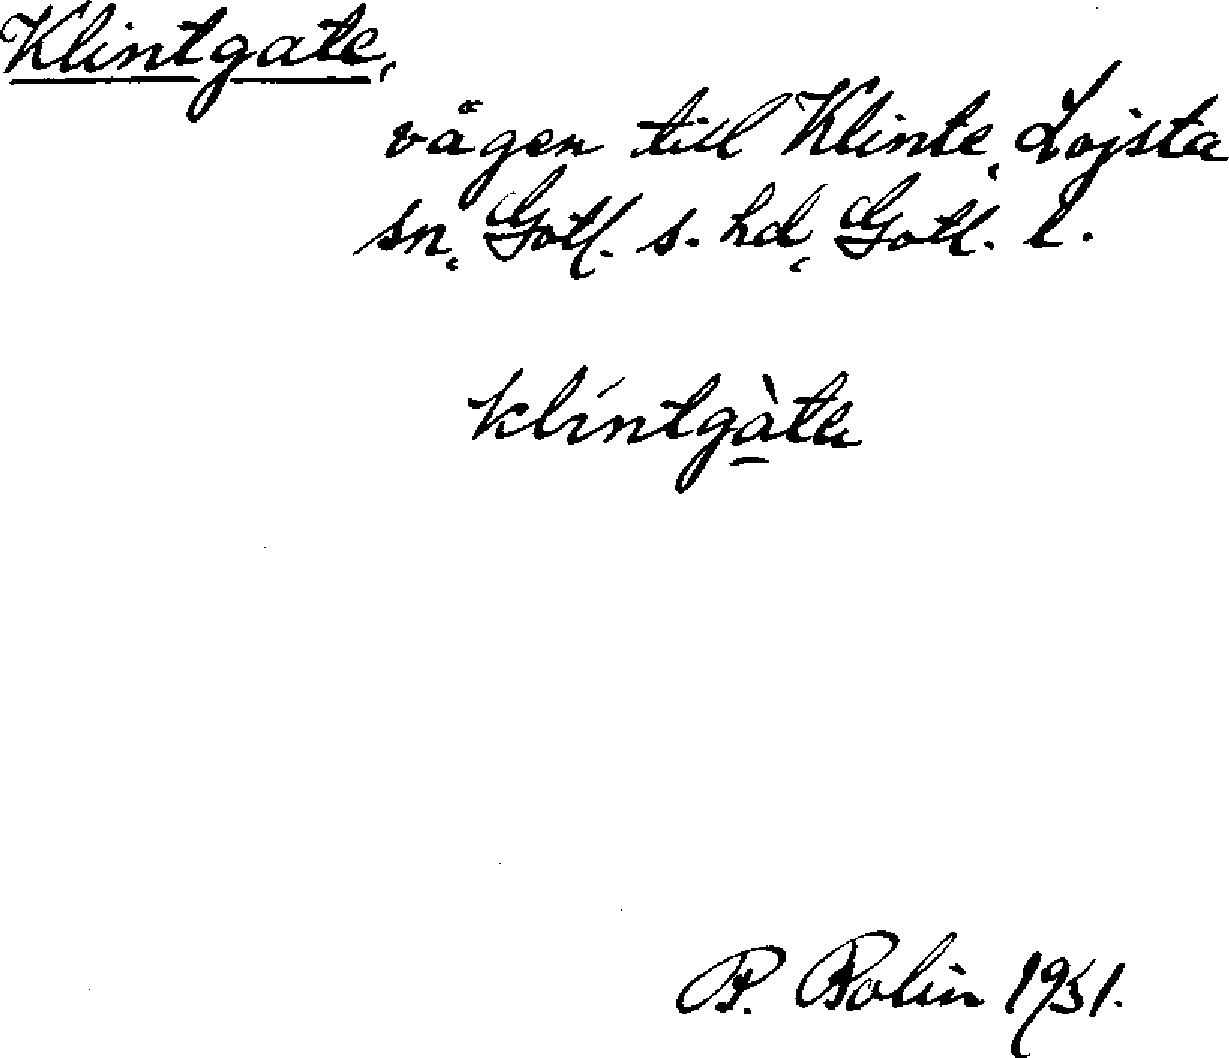 Klintgate,
vägen till Klinte, Lojsta
sn, Gotl. s. hd, Gotl. l.
klíntgà̱tα
P. Bolin 1951.